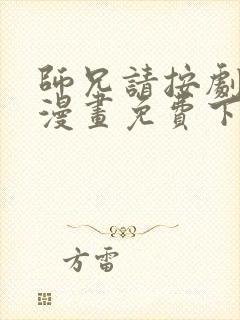 師兄請按劇
漫畫免費下
方雷